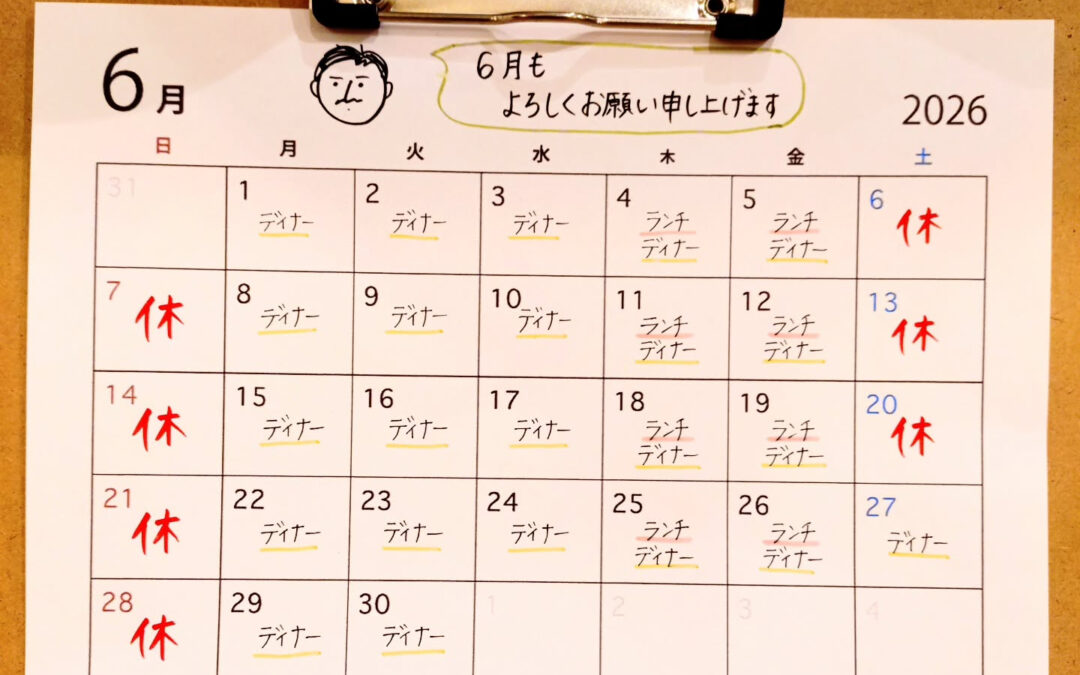 6月
6月も
よろしくお願い申し上げます
2026
日 月 火 水 木 金 土
31 1 2 3 4 5 6
ディナー ディナー ディナー ランチ ランチ 休
ディナー ディナー
7 8 9 10 11 12 13
休 ディナー ディナー ディナー ランチ ランチ 休
ディナー ディナー
14 15 16 17 18 19 20
休 ディナー ディナー ディナー ランチ ランチ 休
ディナー ディナー
21 22 23 24 25 26 27
休 ディナー ディナー ディナー ランチ ランチ ディナー
ディナー ディナー
28 29 30 1 2 3 4
休 ディナー ディナー